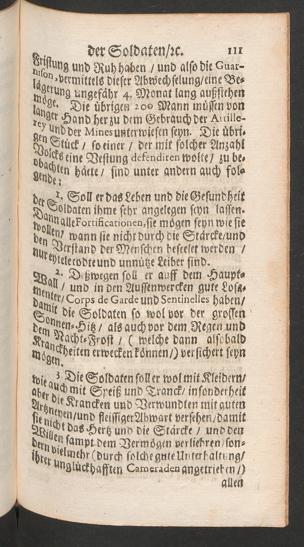 der Soldaten/ ꝛc. 111
Fristung und Ruh haben / und also die Guar-
nison, vermittels dieser Abwechselung/ eine Be-
lägerung ungefähr 4. Monat lang außstehen
möge. Die übrigen 200 Mann müssen von
langer Hand her zu dem Gebrauch der Artille-
rey und der Mines unterwiesen seyn. Die übri-
gen Stück / so einer / der mit solcher Anzahl
Volcks eine Vestung defendiren wolte / zu be-
obachten hätte / sind unter andern auch fol-
gende:
1. Soll er das Leben und die Gesundheit
der Soldaten ihme sehr angelegen seyn lassen.
Dann alle Fortificationen, sie mögen seyn wie sie
wollen/ wann sie nicht durch die Stärcke/ und
den Verstand der Menschen beseelet werden /
nur eytele todte und unnütze Leiber sind.
2. Deßwegen soll er auff dem Haupt-
Wall / und in den Aussenwercken gute Losa-
menter/ Corps de Garde und Sentinelles haben/
damit die Soldaten so wol vor der grossen
Sonnen-Hitz / als auch vor dem Regen und
dem Nacht-Frost / ( welche dann alsobald
Kranckheiten erwecken können/) versichert seyn
mögen.
3. Die Soldaten soll er wol mit Kleidern/
wie auch mit Speiß und Tranck/ insonderheit
aber die Krancken und Verwundten mit guten
Artzneyen/ und fleissiger Abwart versehen/ damit
sie nicht das Hertz und die Stärcke / und den
Willen sampt dem Vermögen verliehren/ son-
dern vielmehr (durch solche gute Unterhaltung/
ihrer unglückhafften Cameraden angetrieben/)
allen